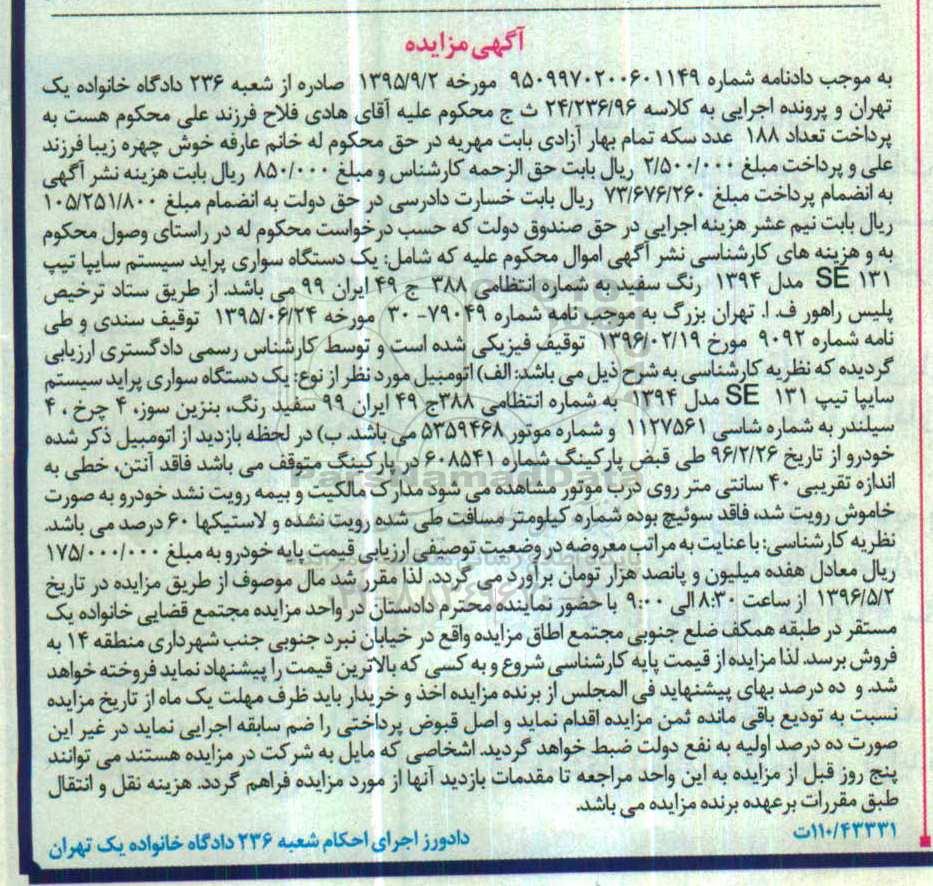 آگهی مزایده
به موجب دادنامه شماره ۹۵۰۹۹۷۰۲۰۰۶۰۱۱۴۹ مورخه ۱۳۹۵/۹/۲ صادره از شعبه ۲۳۶ دادگاه خانواده یک
تهران و پرونده اجرایی به کلاسه ۲۴/۲۳۶/۹۶ ث ج محکوم علیه آقای هادی فلاح فرزند علی محکوم هست به
پرداخت تعداد ۱۸۸ عدد سکه تمام بهار آزادی بابت مهریه در حق محکوم له خانم عارفه خوش چهره زیبا فرزند
علی و پرداخت مبلغ ۲/۵۰۰/۰۰۰ ریال بابت حق الزحمه کارشناس و مبلغ ۸۵۰/۰۰۰ ریال بابت هزینه نشر آگهی
به انضمام پرداخت مبلغ ۷۳/۶۷۶/۲۶۰ ریال بابت خسارت دادرسی در حق دولت به انضمام مبلغ ۱۰۵/۲۵۱/۸۰۰
ریال بابت نیم عشر هزینه اجرایی در حق صندوق دولت که حسب درخواست محکوم له در راستای وصول محکوم
به و هزینه های کارشناسی نشر آگهی اموال محکوم علیه که شامل: یک دستگاه سواری پراید سیستم سایپا تیپ
۱۳۱ SE مدل ۱۳۹۴ رنگ سفید به شماره انتظامی ۳۸۸ ج ۴۹ ایران ۹۹ می باشد. از طریق ستاد ترخیص
پلیس راهور ف. ا. تهران بزرگ به موجب نامه شماره ۷۹۰۴۹- ۳۰ مورخه ۱۳۹۵/۰۶/۲۴ توقیف سندی و طی
نامه شماره ۹۰۹۲ مورخ ۱۳۹۶/۰۲/۱۹ توقیف فیزیکی شده است و توسط کارشناس رسمی دادگستری ارزیابی
گردیده که نظریه کارشناسی به شرح ذیل می باشد: الف) اتومبیل مورد نظر از نوع: یک دستگاه سواری پراید سیستم
سایپا تیپ ۱۳۱ SE مدل ۱۳۹۴ به شماره انتظامی ۳۸۸ج ۴۹ ایران ۹۹ سفید رنگ، بنزین سوز، ۴ چرخ ، ۴
سیلندر به شماره شاسی ۱۱۲۷۵۶۱ و شماره موتور ۵۳۵۹۴۶۸ می باشد. ب) در لحظه بازدید از اتومبیل ذکر شده
خودرو از تاریخ ۹۶/۲/۲۶ طی قبض پارکینگ شماره ۶۰۸۵۴۱ در پارکینگ متوقف می باشد فاقد آنتن، خطی به
اندازه تقریبی ۴۰ سانتی متر روی درب موتور مشاهده می شود مدارک مالکیت و بیمه رویت نشد خودرو به صورت
خاموش رویت شد، فاقد سوئیچ بوده شماره کیلومتر مسافت طی شده رویت نشده و لاستیکها ۶۰ درصد می باشد.
نظریه کارشناسی: با عنایت به مراتب معروضه در وضعیت توصیفی ارزیابی قیمت پایه خودرو به مبلغ ۱۷۵/۰۰۰/۰۰۰
ریال معادل هفده میلیون و پانصد هزار تومان برآورد می گردد. لذا مقرر شد مال موصوف از طریق مزایده در تاریخ
۱۳۹۶/۵/۲ از ساعت ۸:۳۰ الی ۹:۰۰ با حضور نماینده محترم دادستان در واحد مزایده مجتمع قضایی خانواده یک
مستقر در طبقه همکف ضلع جنوبی مجتمع اطاق مزایده واقع در خیابان نبرد جنوبی جنب شهرداری منطقه ۱۴ به
فروش برسد. لذا مزایده از قیمت پایه کارشناسی شروع و به کسی که بالاترین قیمت را پیشنهاد نماید فروخته خواهد
شد. و ده درصد بهای پیشنهاید فی المجلس از برنده مزایده اخذ و خریدار باید ظرف مهلت یک ماه از تاریخ مزایده
نسبت به تودیع باقی مانده ثمن مزایده اقدام نماید و اصل قبوض پرداختی را ضم سابقه اجرایی نماید در غیر این
صورت ده درصد اولیه به نفع دولت ضبط خواهد گردید. اشخاصی که مایل به شرکت در مزایده هستند می توانند
پنج روز قبل از مزایده به این واحد مراجعه تا مقدمات بازدید آنها از مورد مزایده فراهم گردد. هزینه نقل و انتقال
طبق مقررات برعهده برنده مزایده می باشد.
۱۱۰/۴۳۳۳۱ت
دادورز اجرای احکام شعبه ۲۳۶ دادگاه خانواده یک تهران
ParsNamadData